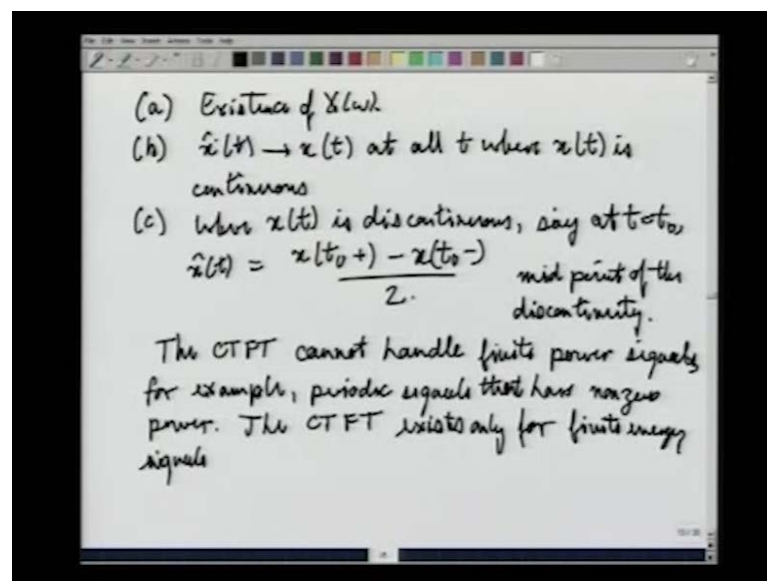 (a) Existence of X(ω).
(b) x̂(t) → x(t) at all t where x(t) is
continuous
(c) where x(t) is discontinuous, say at t=t₀,
x̂(t) = x(t₀+) − x(t₀−) / 2.
mid point of the
discontinuity.
The CTFT cannot handle finite power signals,
for example, periodic signals that have nonzero
power. The CTFT exists only for finite energy
signals